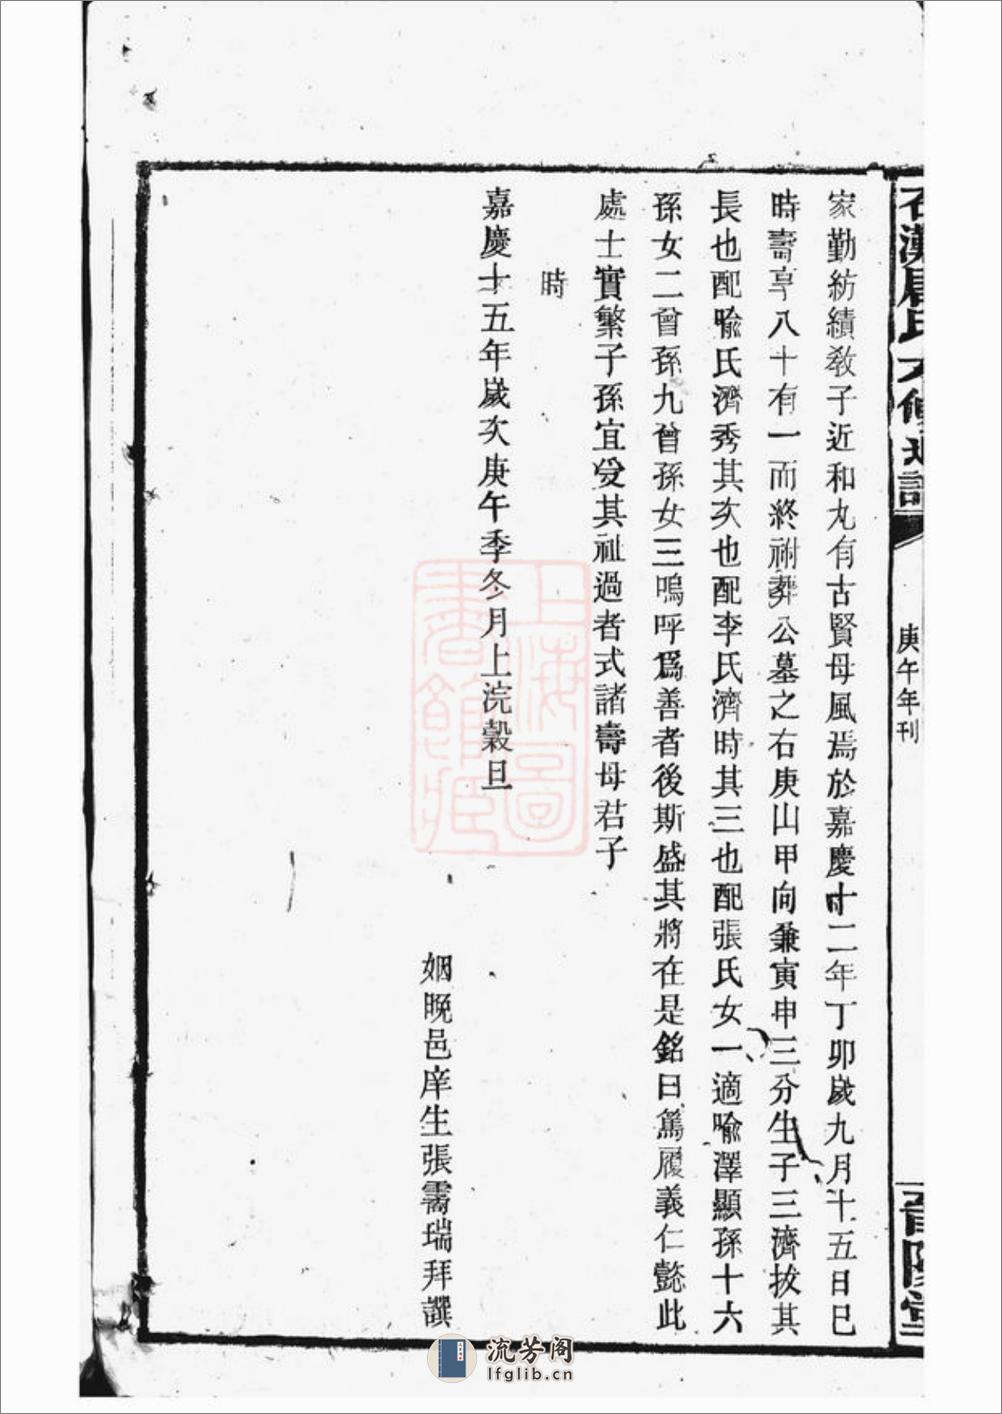 家勤紡績敎子近和九有古賢母風焉於嘉慶十二年丁卯歲九月十五日巳
時壽享八十有一而終祔葬公墓之右庚山甲向兼寅申三分生子三濟拔其
長也配喻氏濟秀其次也配李氏濟時其三也配張氏女一適喻澤顯孫十六
孫女二曾孫九曾孫女三嗚呼爲善者後斯盛其將在是銘曰篤履義仁懿此
處士實繁子孫宜受其祉過者式諸壽母君子
時
嘉慶十五年歲次庚午季冬月上浣穀旦
姻晚邑庠生張霱瑞拜譔
庚午年刊
上海圖書館藏
流芳阁
lfglib.cn